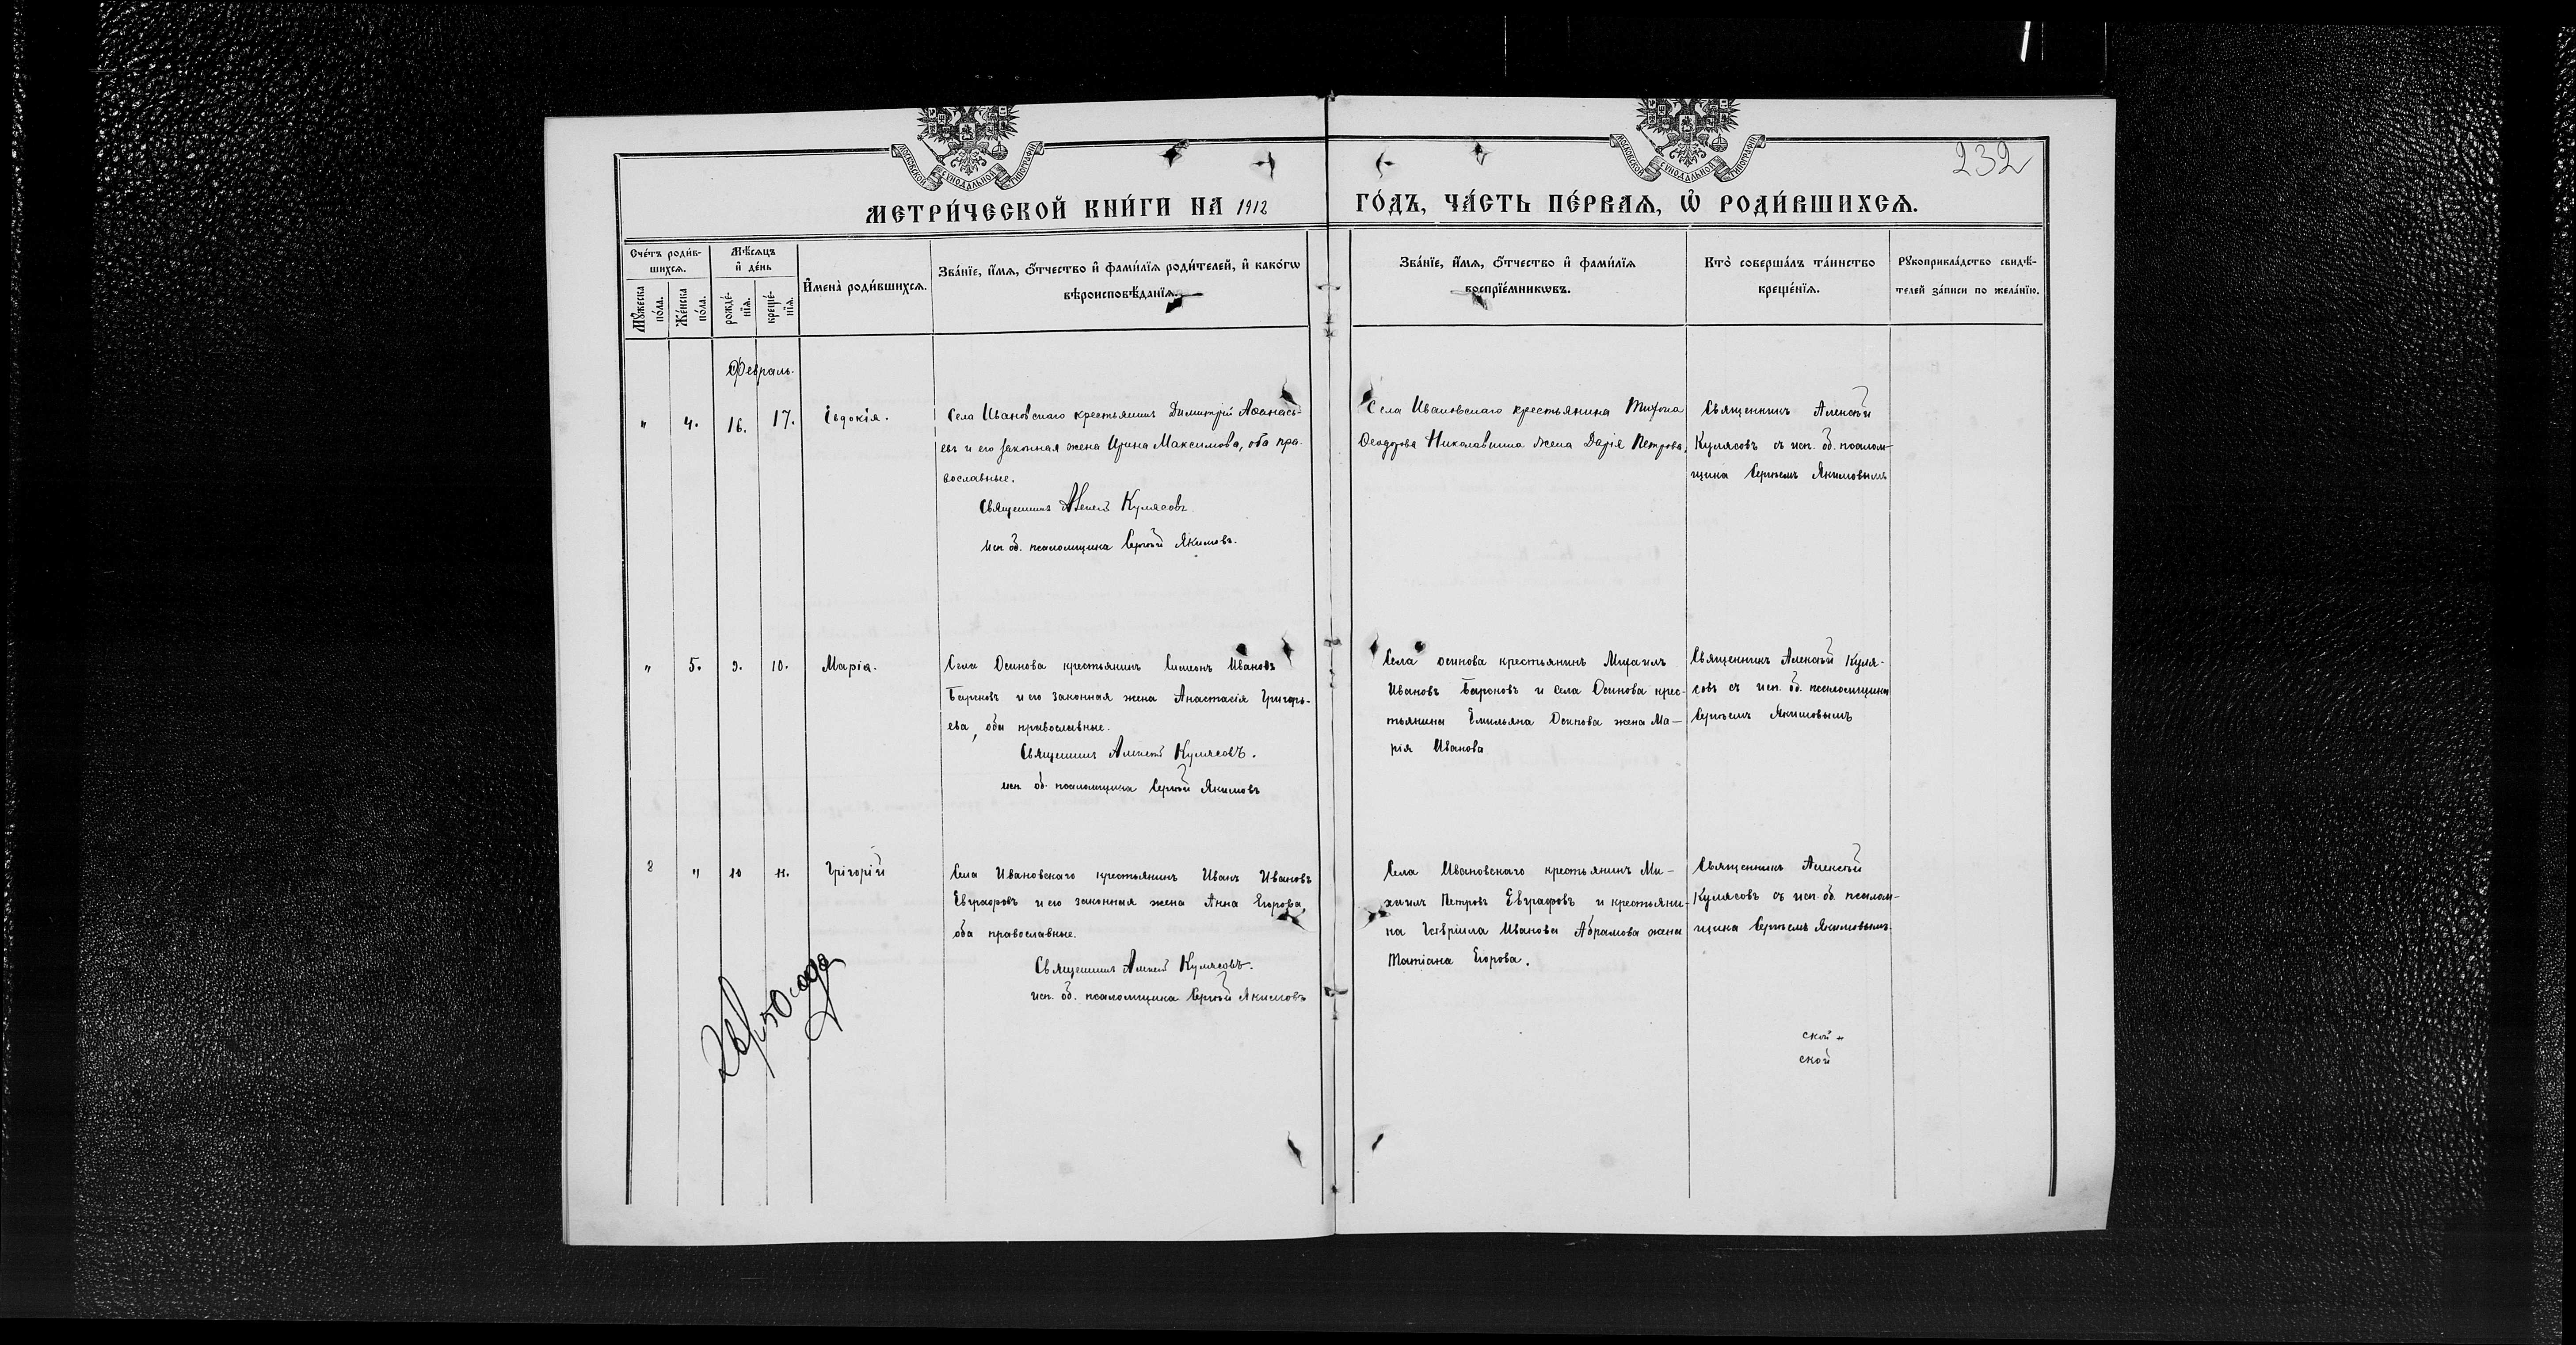 МОСКОВСКОЙ СУНОДАЛЬНОЙ ТИПОГРАФІИ
МОСКОВСКОЙ СУНОДАЛЬНОЙ ТИПОГРАФІИ
232
МЕТРИ́ЧЕСКОЙ КНИ́ГИ НА 1912 ГО́ДЪ, ЧА́СТЬ ПЕ́РВАѦ, Ѡ҆ РОДИ́ВШИХСѦ.
Сче́тъ роди́в-
шихсѧ.
Мꙋ́жеска
по́ла.
Же́нска
по́ла.
Мѣ́сѧцъ
и҆ де́нь
рожде́-
нїѧ.
креще́-
нїѧ.
И҆мена̀ роди́вшихсѧ.
Зва́нїе, и҆́мѧ, ѻ҆́тчество и҆ фами́лїѧ роди́телей, и҆ како́гѡ
вѣроисповѣ́данїѧ.
Зва́нїе, и҆́мѧ, ѻ҆́тчество и҆ фами́лїѧ
воспрїе́мникѡвъ.
Кто̀ соверша́лъ та́инство
креще́нїѧ.
Рꙋкоприкла́дство свидѣ́-
телей за́писи по жела́нїю.
Февраль.
" 4. 16. 17. Евдокія.
Села Ивановскаго крестьянинъ Димитрій Аѳанась-
евъ и его законная жена Ирина Максимова, оба пра-
вославные.
Священникъ Алексѣй Кулясовъ
Исп. об. псаломщика Сергѣй Якимовъ.
Села Ивановскаго крестьянина
Ѳеодорова жена Дарія Петрова.
Священникъ Алексѣй
Кулясовъ съ исп. об. псалом-
щика Сергѣемъ Якимовымъ
" 5. 9. 10. Марія.
Села Осинова крестьянинъ Симеонъ Ивановъ
Барсковъ и его законная жена Анастасія Григорь-
ева, оба православные.
Священникъ Алексѣй Кулясовъ.
исп. об. псаломщика Сергѣй Якимовъ
Села Осинова крестьянинъ Михаилъ
Ивановъ Барсковъ и села Осинова крес-
тьянина Емильяна Осипова жена Ма-
рія Иванова
Священникъ Алексѣй Куля-
совъ съ исп. об. псаломщика
Сергѣемъ Якимовымъ
8 " 10 11. Григорій
Села Ивановскаго крестьянинъ Иванъ Ивановъ
Евграфовъ и его законная жена Анна Егорова,
оба православные.
Священникъ Алексѣй Кулясовъ.
исп. об. псаломщика Сергѣй Якимовъ
Села Ивановскаго крестьянинъ Ми-
хаилъ Петровъ Евграфовъ и крестьяни-
на Гавріила Иванова Абрамова жена
Татіана Егорова.
Священникъ Алексѣй
Кулясовъ съ исп. об. псалом-
щика Сергѣемъ Якимовымъ.
ской
ской